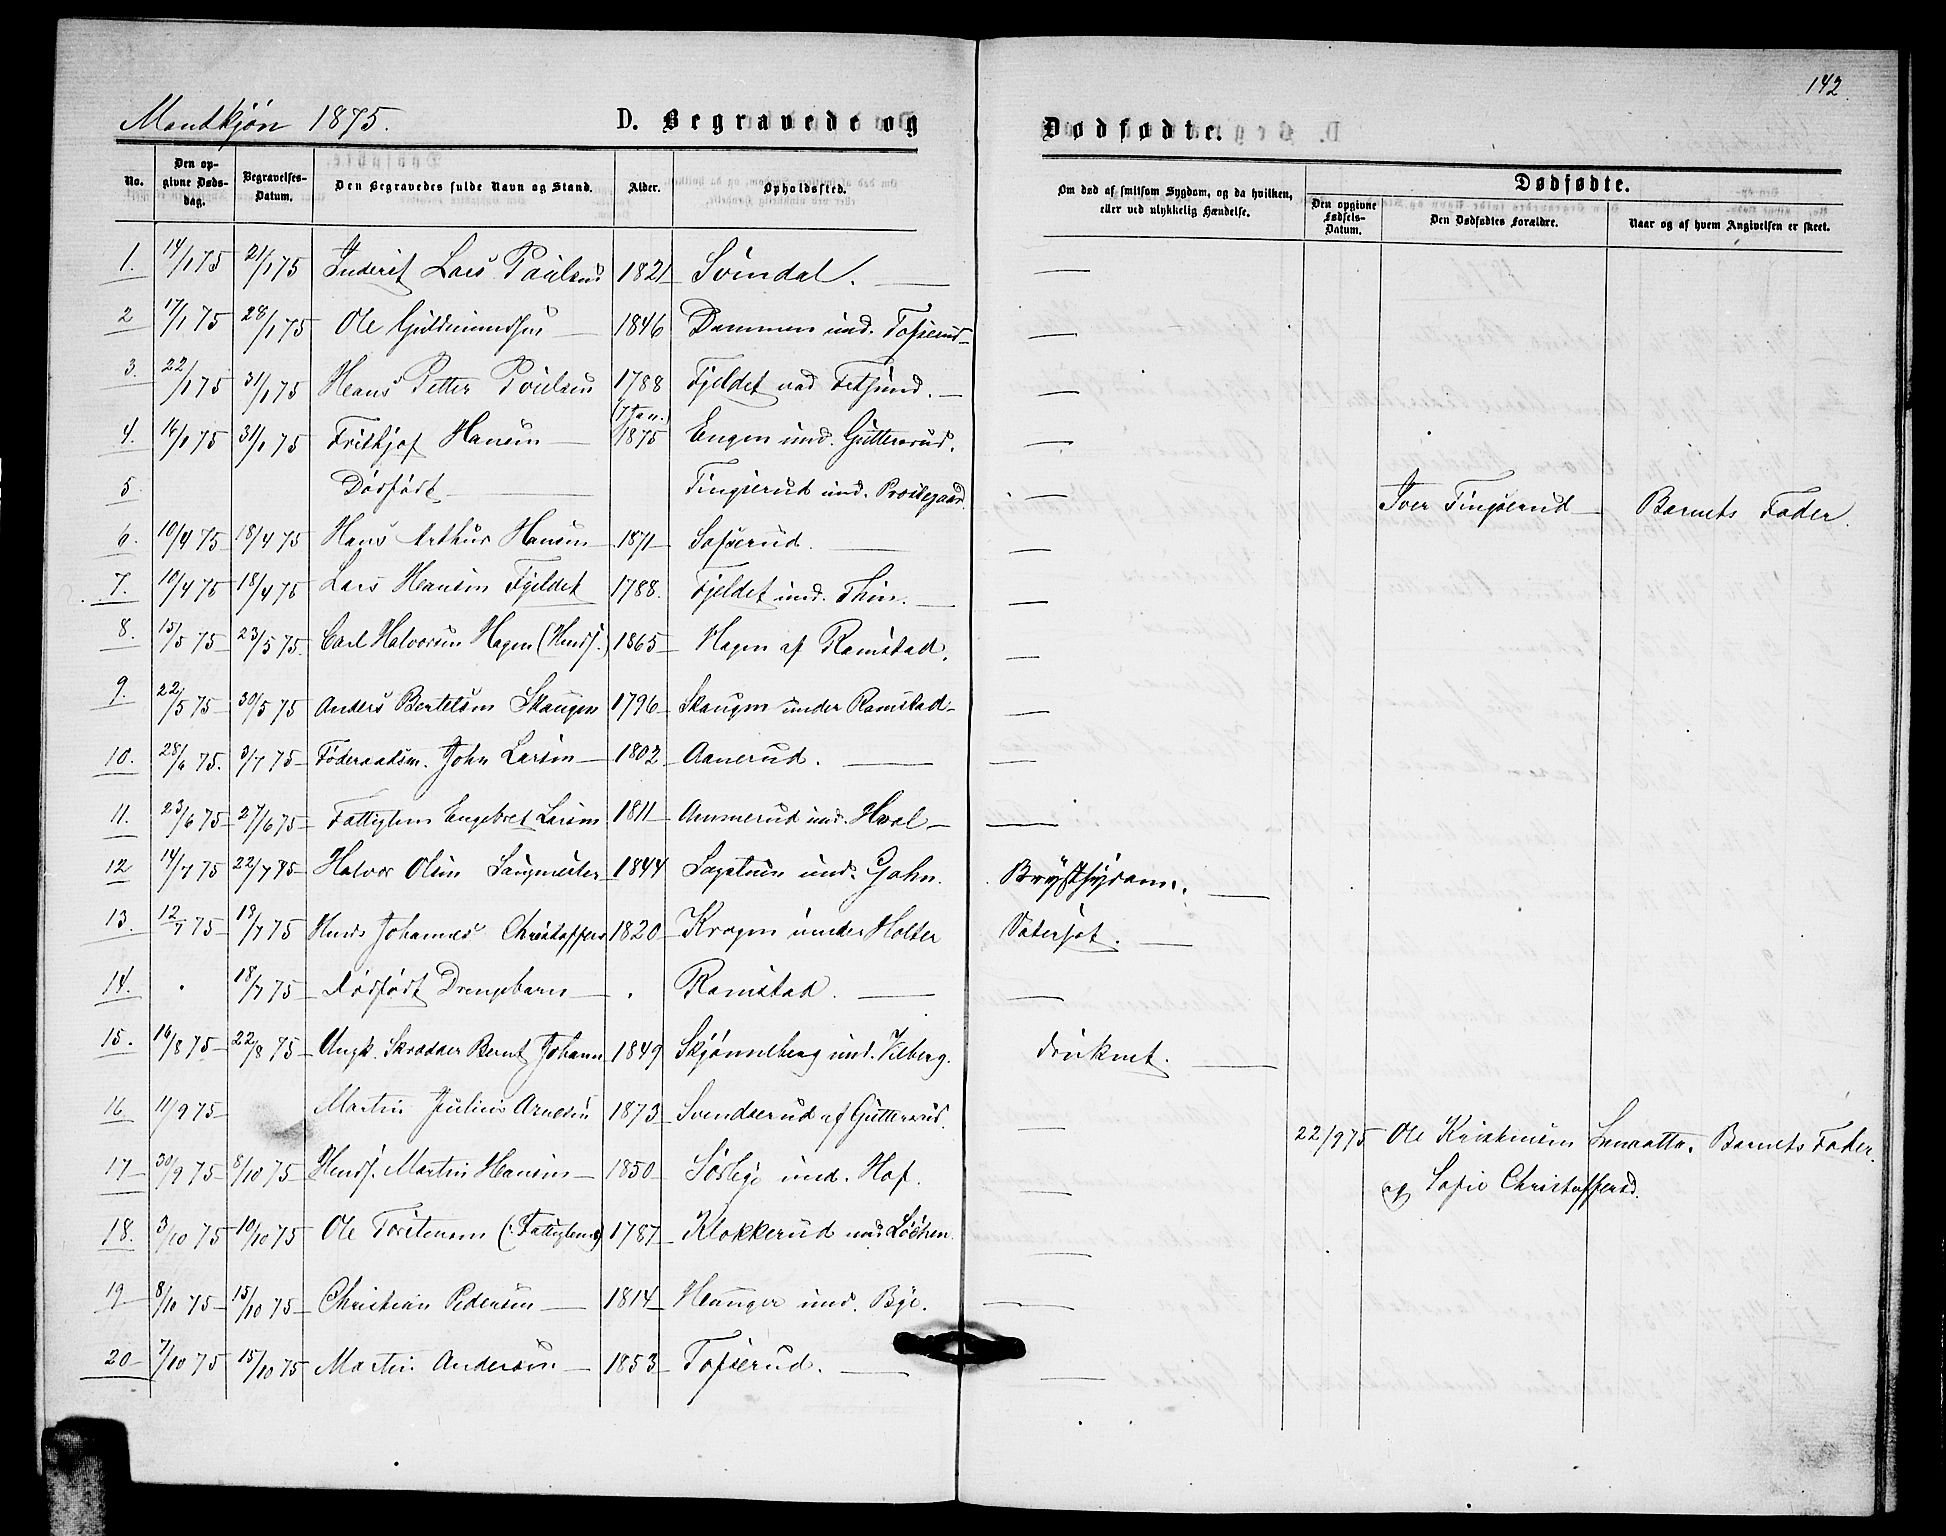 142.
Mandkjøn 1875.
D. Begravede og Dødfødte.
No.
Den opgivne Dødsdag.
Begravelses-Datum.
Den Begravedes fulde Navn og Stand.
Alder.
Opholdssted.
Om død af smitsom Sygdom, og da hvilken, eller ved ulykkelig Hændelse.
Dødfødte.
Den opgivne Fødsels-Datum.
Den Dødfødtes Forældre.
Naar og af hvem Angivelsen er skeet.
1. 14/1 75 21/1 75 Inderst Lars Paulsen 1821 Svindal. —
2 17/1 75 28/1 75 Ole Guldmundsen 1846 Dammen und. Tofserud —
3. 22/1 75 31/1 75 Hans Petter Poulsen 1788 Fjeldet ved Fetsund. —
4. 14/1 75 31/1 75 Frithjof Hansen (7 Jan.) 1875 Engen und. Guttersrud. —
5 Dødfødt Tingserud und. Prestegaard. — Iver Tingserud — Barnets Fader.
6. 10/4 75 18/4 75 Hans Arthur Hansen 1871 Sofserud. —
7. 10/4 75 18/4 75 Lars Hansen Fjeldet 1788. Fjeldet und. Thien. —
8. 15/5 75 23/5 75. Carl Halvorsen Hagen (Huusf.) 1865 Hagen af Ramstad. —
9. 22/5 75 30/5 75 Anders Bertelsen Skaugen 1796 Skaugen under Ramstad —
10. 28/6 75. 3/7 75 Føderaadsm. John Larsen 1802 Aanerud. —
11. 23/6 75 27/6 75 Fattiglem Engebret Larsen 1811 Ammerud und. Hval —
12 14/7 75 22/7 75 Halvor Olsen Saugmester 1844 Sagstuen und. Gahn. Brystsygdom. —
13. 12/7 75 19/7 75 Huusm. Johannes Christoffers 1820 Kragen under Holter Vatersot. —
14. 18/7 75 Dødfødt Drengebarn Ramstad. —
15. 16/8 75 22/8 75 Ungk. Skrædder Bernt Johann 1849 Skjønneberg und. Vilberg. druknet. —
16 11/9 75 Martin Julius Arnesen 1873 Svendserud af Guttersrud. —
22/9 75 Ole Kristensen — Barnets Fader.
og Sofie Christoffersd.
17 30/9 75 8/10 75 Huusf. Martin Hansen 1850 Søslye und. Hof. —
18. 3/10 75 10/10 75 Ole Torstensen (: Fattiglem) 1787 Klokkerud und. Løchen. —
19 8/10 75 15/10 75 Christian Pedersen 1814 Haanger und. Bye. —
20 7/10 75 15/10 75 Martin Andersen 1853 Tofserud. —